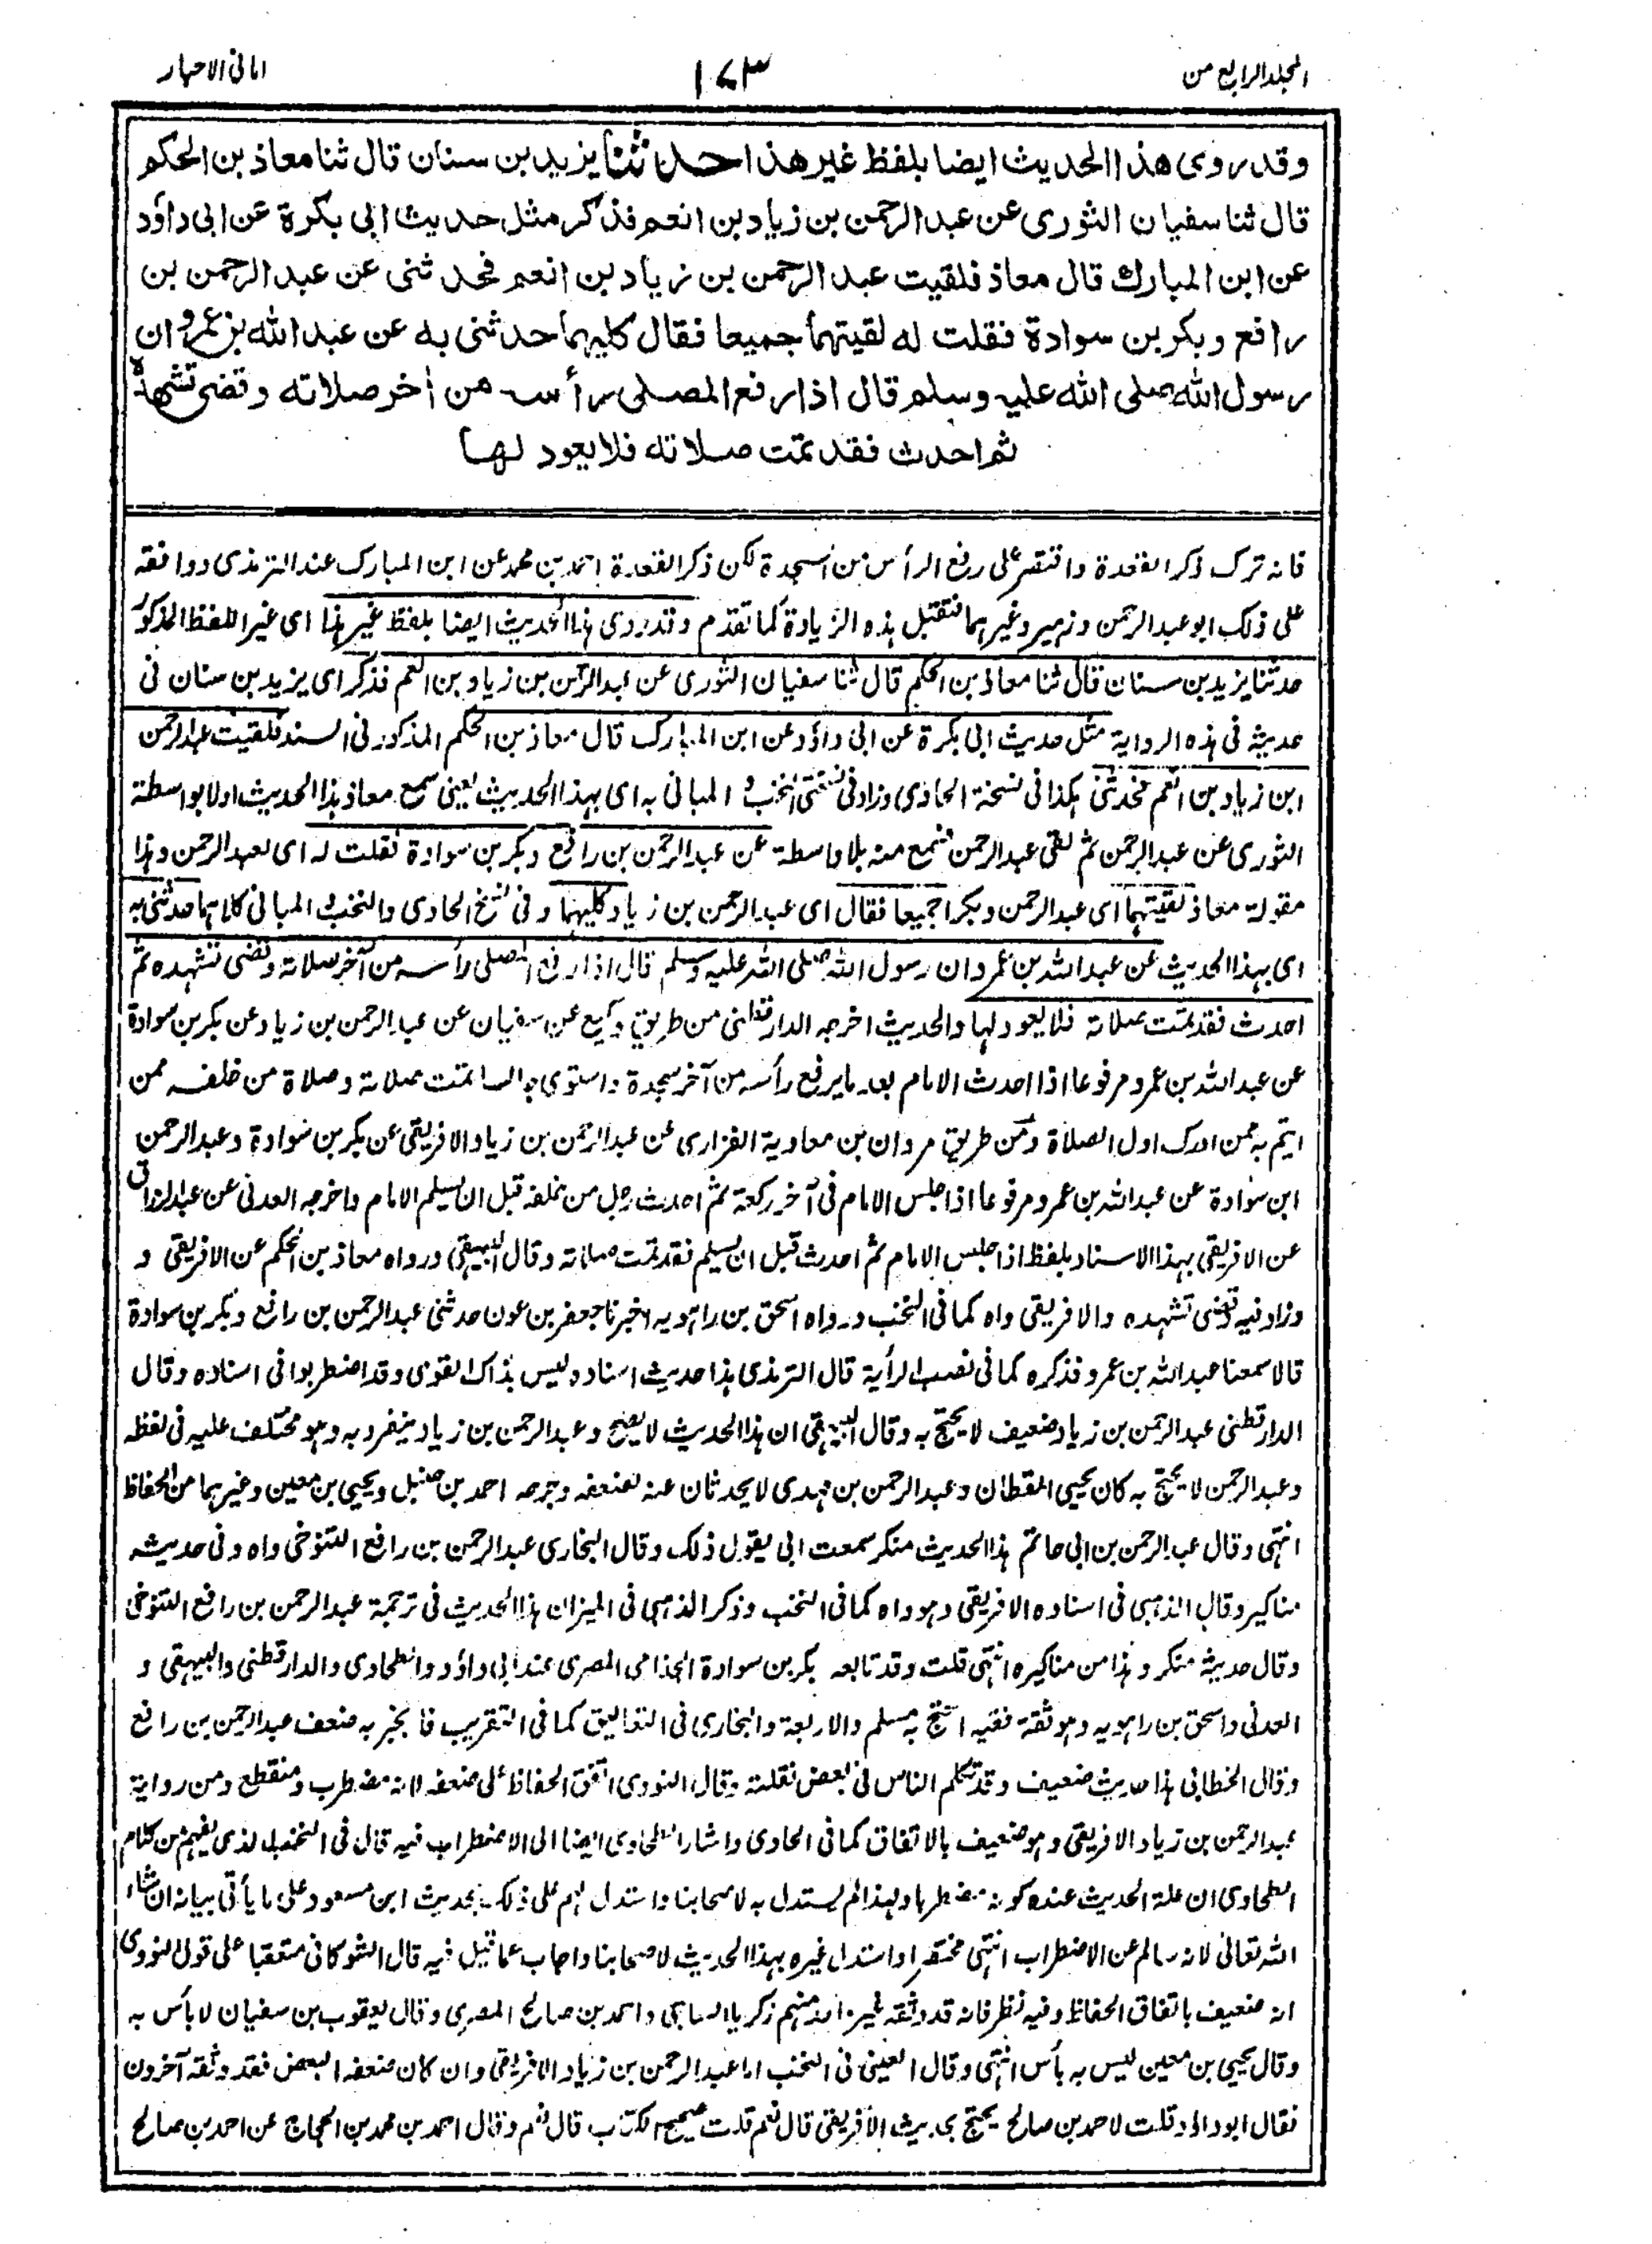 المجلد الرابع من
١٧٣
امانى الاحبار
وقد روى هذا الحديث ايضا بلفظ غير هذا حدثنا يزيد بن سنان قال ثنا معاذ بن الحكم
قال ثنا سفيان الثورى عن عبد الرحمن بن زياد بن انعم فذكر مثل حديث ابى بكرة عن ابى داؤد
عن ابن المبارك قال معاذ فلقيت عبد الرحمن بن زياد بن انعم فحدثنى عن عبد الرحمن بن
رافع وبكر بن سوادة فقلت له لقيتهما جميعا فقال كليهما حدثنى به عن عبد الله بن عمرو ان
رسول الله صلى الله عليه وسلم قال اذا رفع المصلى رأسه من أخر صلاته وقضى تشهده
ثم احدث فقد تمت صلاته فلا يعود لها
فانه ترك ذكر القعدة واقتصر على رفع الرأس من السجدة لكن ذكر القعدة احمد بن محمد عن ابن المبارك عند الترمذى ووافقه
على ذلك ابو عبد الرحمن وزهير وغيرهما فتقبل هذه الزيادة كما تقدم وقد روى هذا الحديث ايضا بلفظ غير هذا اى غير اللفظ المذكور
حدثنا يزيد بن سنان قال ثنا معاذ بن الحكم قال ثنا سفيان الثورى عن عبد الرحمن بن زياد بن انعم فذكر اى يزيد بن سنان فى
حديثه فى هذه الرواية مثل حديث ابى بكرة عن ابى داؤد عن ابن المبارك قال معاذ بن الحكم المذكور فى السند فلقيت عبد الرحمن
ابن زياد بن انعم فحدثنى هكذا فى نسخة الحاوى وزاد فى نسختى النخب و المبانى به اى بهذا الحديث يعنى سمع معاذ هذا الحديث اولا بواسطة
الثورى عن عبد الرحمن ثم لقى عبد الرحمن فسمع منه بلا واسطة عن عبد الرحمن بن رافع وبكر بن سوادة فقلت له اى لعبد الرحمن وهذا
مقولة معاذ لقيتهما اى عبد الرحمن وبكرا جميعا فقال اى عبد الرحمن بن زياد كليهما وفى نسخ الحاوى والنخب و المبانى كلاهما حدثنى به
اى بهذا الحديث عن عبد الله بن عمرو ان رسول الله صلى الله عليه وسلم قال اذا رفع المصلى رأسه من آخر صلاته وقضى تشهده ثم
احدث فقد تمت صلاته فلا يعود لها والحديث اخرجه الدارقطنى من طريق وكيع عن سفيان عن عبد الرحمن بن زياد عن بكر بن سوادة
عن عبد الله بن عمرو مرفوعا اذا احدث الامام بعد ما يرفع رأسه من آخر سجدة واستوى جالسا تمت صلاته وصلاة من خلفه ممن
ايتم به ممن ادرك اول الصلاة ومن طريق مروان بن معاوية الفزارى عن عبد الرحمن بن زياد الافريقى عن بكر بن سوادة وعبد الرحمن
ابن سوادة عن عبد الله بن عمرو مرفوعا اذا جلس الامام فى آخر ركعة ثم احدث رجل من خلفه قبل ان يسلم الامام واخرجه العدنى عن عبد الرزاق
عن الافريقى بهذا الاسناد بلفظ اذا جلس الامام ثم احدث قبل ان يسلم فقد تمت صلاته وقال البيهقى ورواه معاذ بن الحكم عن الافريقى و
وزاد فيه وقضى تشهده والافريقى واه كما فى النخب ورواه اسحق بن راهويه اخبرنا جعفر بن عون حدثنى عبد الرحمن بن رافع وبكر بن سوادة
قالا سمعنا عبد الله بن عمرو فذكره كما فى نصب الرأية قال الترمذى هذا حديث اسناده ليس بذاك القوى وقد اضطربوا فى اسناده وقال
الدارقطنى عبد الرحمن بن زياد ضعيف لا يحتج به وقال البيهقى ان هذا الحديث لا يصح و عبد الرحمن بن زياد ينفرد به وهو مختلف عليه فى لفظه
وعبد الرحمن لا يحتج به كان يحيى القطان وعبد الرحمن بن مهدى لا يحدثان عنه لضعفه وجرحه احمد بن حنبل ويحيى بن معين وغيرهما من الحفاظ
انتهى وقال عبد الرحمن بن ابى حاتم هذا الحديث منكر سمعت ابى يقول ذلك وقال البخارى عبد الرحمن بن رافع التنوخى واه وفى حديثه
مناكير وقال الذهبى فى اسناده الافريقى وهو واه كما فى النخب وذكر الذهبى فى الميزان هذا الحديث فى ترجمة عبد الرحمن بن رافع التنوخى
وقال حديثه منكر وهذا من مناكيره انتهى قلت وقد تابعه بكر بن سوادة الجذامى المصرى عند ابى داؤد والطحاوى والدارقطنى والبيهقى و
العدنى واسحق بن راهويه وهو ثقة فقيه احتج به مسلم والاربعة والبخارى فى التعاليق كما فى التقريب فانجبر به ضعف عبد الرحمن بن رافع
وقال الخطابى هذا حديث ضعيف وقد تكلم الناس فى بعض نقلته وقال النووى اتفق الحفاظ على ضعفه لانه مضطرب ومنقطع ومن رواية
عبد الرحمن بن زياد الافريقى وهو ضعيف بالاتفاق كما فى الحاوى واشار الطحاوى ايضا الى الاضطراب فيه قال فى النخب الذى يفهم من كلام
الطحاوى ان علة الحديث عنده كونه مضطربا ولهذا لم يستدل به لاصحابنا واستدل لهم على ذلك بحديث ابن مسعود على ما يأتى بيانه ان شاء
الله تعالى لانه سالم عن الاضطراب انتهى مختصرا واستدل غيره بهذا الحديث لاصحابنا واجاب عما قيل فيه قال الشوكانى متعقبا على قول النووى
انه ضعيف باتفاق الحفاظ وفيه نظر فانه قد وثقه غير واحد منهم زكريا الساجى واحمد بن صالح المصرى وقال يعقوب بن سفيان لا بأس به
وقال يحيى بن معين ليس به بأس انتهى وقال العينى فى النخب اما عبد الرحمن بن زياد الافريقى وان كان ضعفه البعض فقد وثقه آخرون
فقال ابو داؤد قلت لاحمد بن صالح يحتج بحديث الافريقى قال نعم قلت صحيح الكتاب قال نعم وقال احمد بن محمد بن الحجاج عن احمد بن صالح